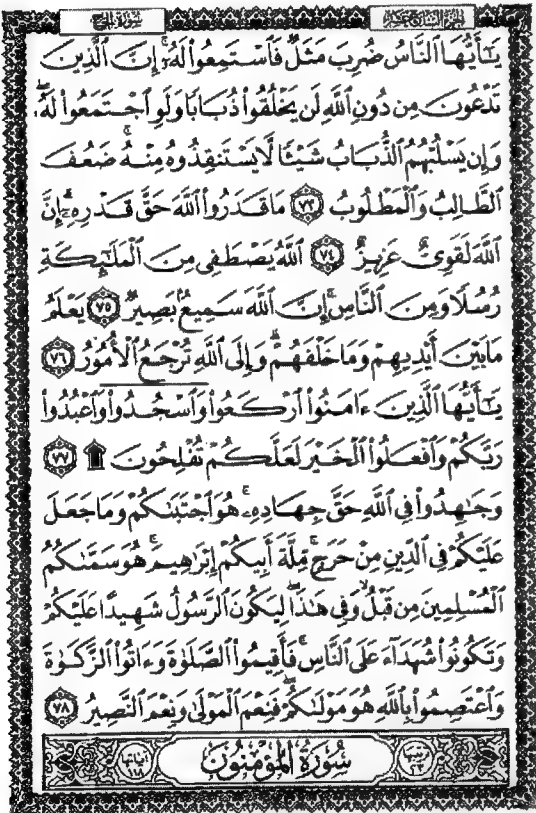 سُورَةُ الحَجّ الجزءُ السَّابِعَ عَشَرَ
يَٰٓأَيُّهَا ٱلنَّاسُ ضُرِبَ مَثَلٌ فَٱسْتَمِعُوا۟ لَهُۥٓ ۚ إِنَّ ٱلَّذِينَ
تَدْعُونَ مِن دُونِ ٱللَّهِ لَن يَخْلُقُوا۟ ذُبَابًا وَلَوِ ٱجْتَمَعُوا۟ لَهُۥ ۖ
وَإِن يَسْلُبْهُمُ ٱلذُّبَابُ شَيْـًٔا لَّا يَسْتَنقِذُوهُ مِنْهُ ۚ ضَعُفَ
ٱلطَّالِبُ وَٱلْمَطْلُوبُ ٧٣ مَا قَدَرُوا۟ ٱللَّهَ حَقَّ قَدْرِهِۦٓ ۗ إِنَّ
ٱللَّهَ لَقَوِىٌّ عَزِيزٌ ٧٤ ٱللَّهُ يَصْطَفِى مِنَ ٱلْمَلَٰٓئِكَةِ
رُسُلًا وَمِنَ ٱلنَّاسِ ۚ إِنَّ ٱللَّهَ سَمِيعٌۢ بَصِيرٌ ٧٥ يَعْلَمُ
مَا بَيْنَ أَيْدِيهِمْ وَمَا خَلْفَهُمْ ۗ وَإِلَى ٱللَّهِ تُرْجَعُ ٱلْأُمُورُ ٧٦
يَٰٓأَيُّهَا ٱلَّذِينَ ءَامَنُوا۟ ٱرْكَعُوا۟ وَٱسْجُدُوا۟ وَٱعْبُدُوا۟
رَبَّكُمْ وَٱفْعَلُوا۟ ٱلْخَيْرَ لَعَلَّكُمْ تُفْلِحُونَ ۩ ٧٧
وَجَٰهِدُوا۟ فِى ٱللَّهِ حَقَّ جِهَادِهِۦ ۚ هُوَ ٱجْتَبَىٰكُمْ وَمَا جَعَلَ
عَلَيْكُمْ فِى ٱلدِّينِ مِنْ حَرَجٍ ۚ مِّلَّةَ أَبِيكُمْ إِبْرَٰهِيمَ ۚ هُوَ سَمَّىٰكُمُ
ٱلْمُسْلِمِينَ مِن قَبْلُ وَفِى هَٰذَا لِيَكُونَ ٱلرَّسُولُ شَهِيدًا عَلَيْكُمْ
وَتَكُونُوا۟ شُهَدَآءَ عَلَى ٱلنَّاسِ ۚ فَأَقِيمُوا۟ ٱلصَّلَوٰةَ وَءَاتُوا۟ ٱلزَّكَوٰةَ
وَٱعْتَصِمُوا۟ بِٱللَّهِ هُوَ مَوْلَىٰكُمْ ۖ فَنِعْمَ ٱلْمَوْلَىٰ وَنِعْمَ ٱلنَّصِيرُ ٧٨
ترتيبها ٢٣ سُورَةُ المُؤْمِنُونَ آياتها ١١٨